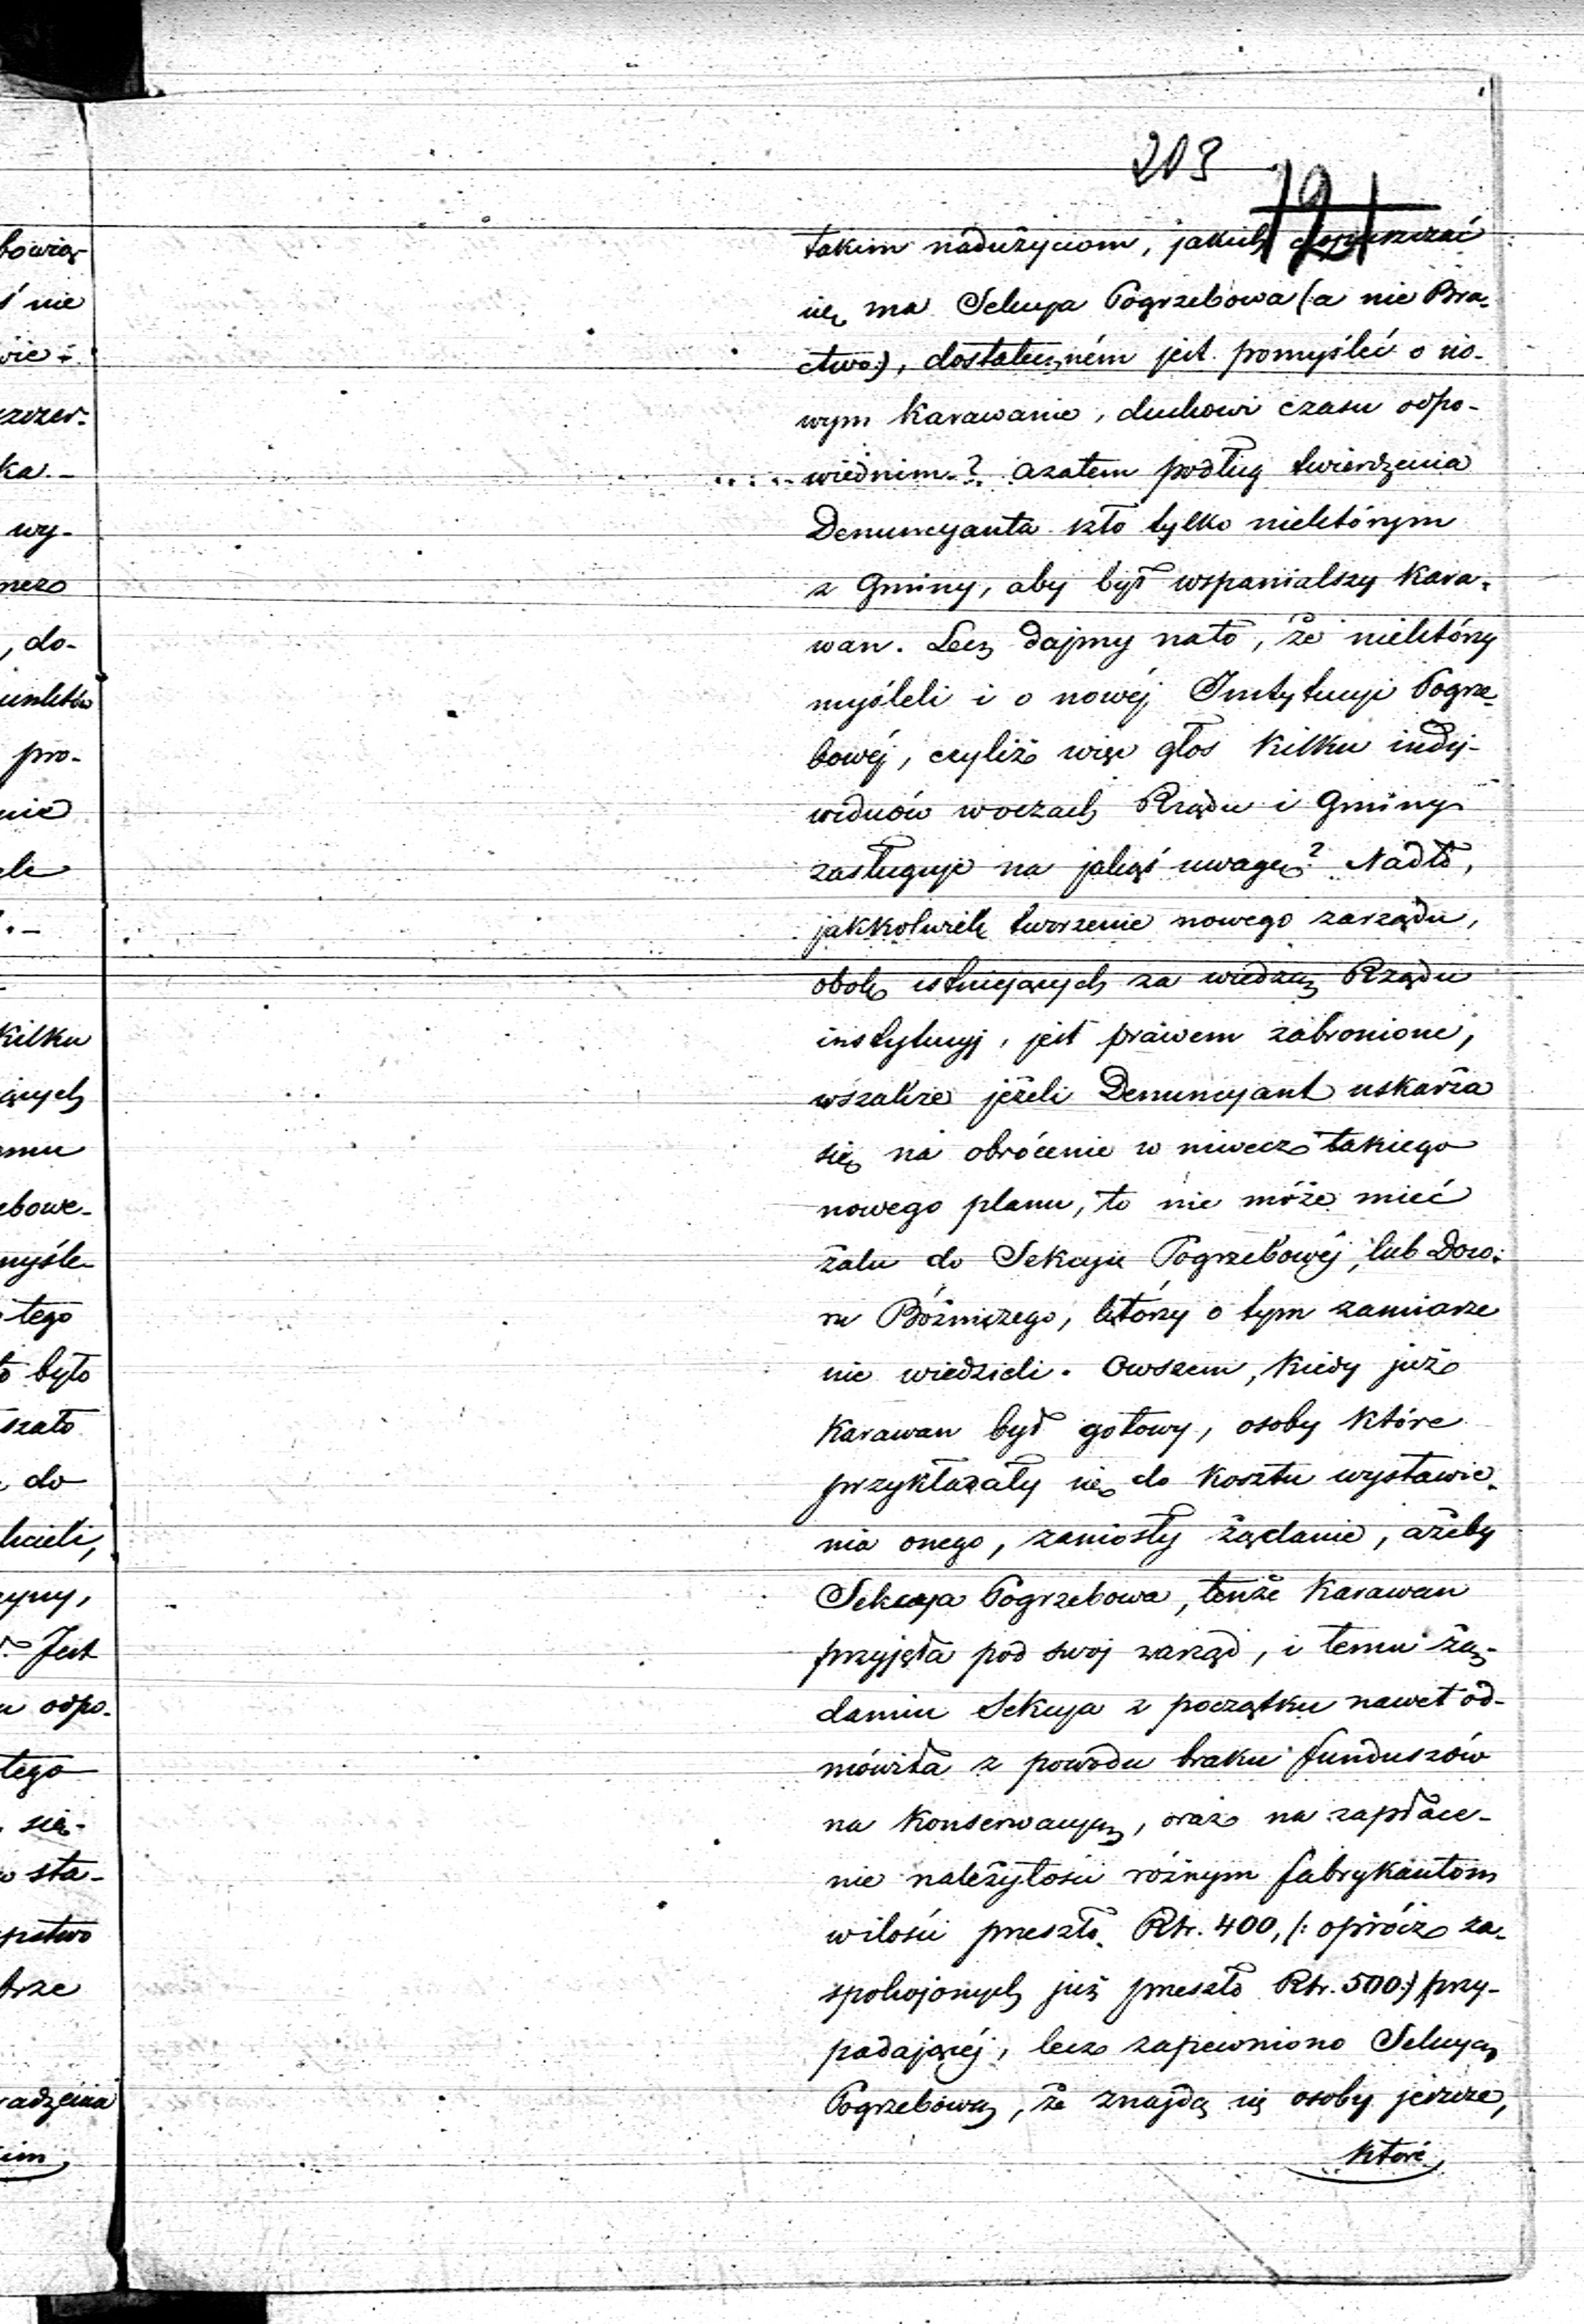 203
121
bowią-
ś nie
wie-
szczer-
ka.-
wy-
, do-
unktów
pro-
nie
kilku
ących
emu
ebowe-
myśle-
tego
to było
szało
do
hcieli,
Jest
u odpo-
tego
się-
sta-
pstwo
brze
adzenia
kim
takim nadużyciom, jakich dopuszczać
się ma Sekcya Pogrzebowa (a nie Bra-
ctwo:), dostateczném jest pomyśleć o no-
wym karawanie, duchowi czasu odpo-
wiednim? azatem podług twierdzenia
Denuncyanta szło tylko niektórym
z Gminy, aby był wspanialszy kara-
wan. Lecz dajmy nato, że niektórzy
myśleli i o nowéj Instytucyi Pogrze-
bowéj, czyliż więc głos kilku indy-
widuów w oczach Rządu i Gminy
zasługuje na jakąś uwagę? Nadto,
jakkolwiek tworzenie nowego zarządu,
obok istniejących za wiedzą Rządu
instytucyj, jest prawem zabronione,
wszakże jeżeli Denuncyant uskarża
się na obrócenie w niwecz takiego
nowego planu, to nie może mieć
żalu do Sekcyi Pogrzebowéj, lub Dozo-
ru Bóżniczego, którzy o tym zamiarze
nie wiedzieli. Owszem, kiedy już
karawan był gotowy, osoby które
przykładały się do kosztu wystawie-
nia onego, zaniosły żądanie, ażeby
Sekcya Pogrzebowa, tenże karawan
przyjęła pod swoj zarząd, i temu żą-
daniu Sekcya z początku nawet od-
mówiła z powodu braku funduszów
na konserwacyą, oraz na zapłace-
nie należytości różnym fabrykantom
wilości przeszło Rsr. 400, (: oprócz za-
spokojonych już przeszło Rsr. 500:) przy-
padającéj, lecz zapewniono Sekcyą
Pogrzebową, że znajdą się osoby jeszcze,
które